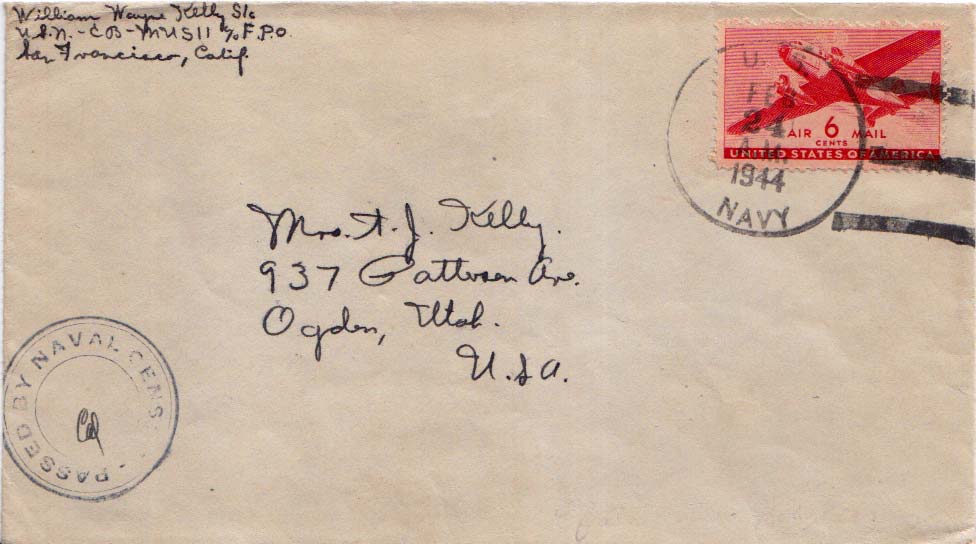 William Wayne Kelly S/c
U.S.N. - CB - MUS11 c/o F.P.O.
San Francisco, Calif.
AIR 6 MAIL
CENTS
UNITED STATES OF AMERICA
U. S.
FEB
24
A.M.
1944
NAVY
Mrs. A. J. Kelly.
937 Patterson Ave.
Ogden, Utah.
U.S.A.
PASSED BY NAVAL CENS